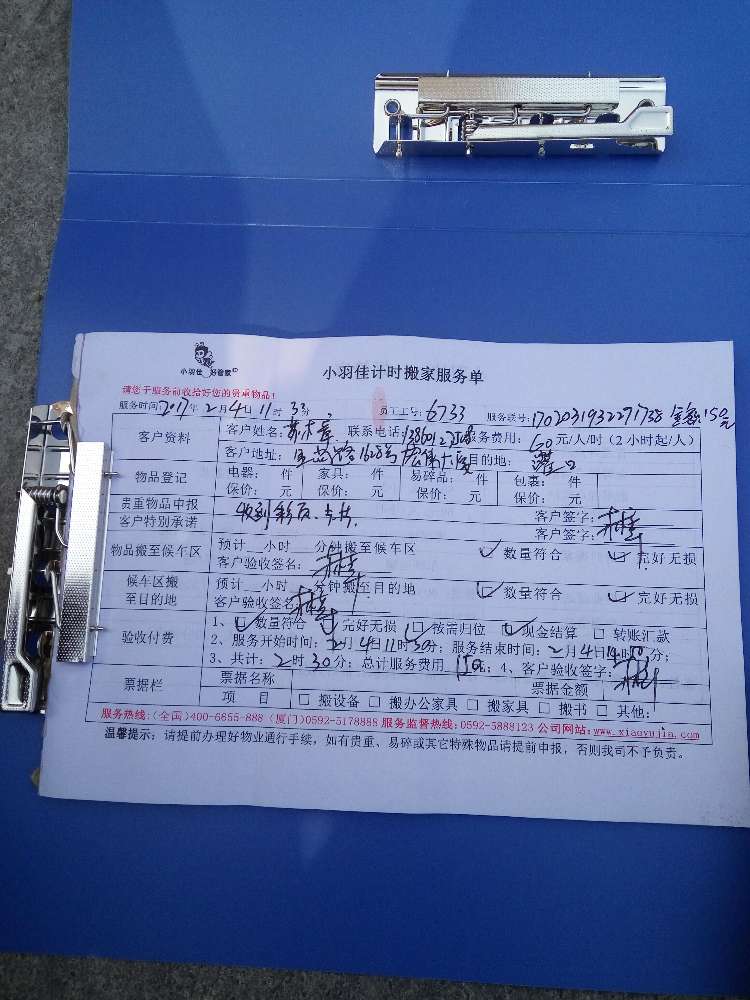 小羽佳 好管家
小羽佳计时搬家服务单
请您于服务前收给好您的贵重物品!
服务时间2017年2月4日11时33分 员工工号:6733 服务联号:1702031932271738
客户资料 客户姓名: 联系电话: 服务费用:60元/人/时(2小时起/人)
客户地址: 1628号 目的地:灌口
物品登记 电器: 件 家具: 件 易碎品: 件 包裹: 件
保价: 元 保价: 元 保价: 元 保价: 元
贵重物品申报 收到彩页、卡片 客户签字:
客户特别承诺 客户签字:
物品搬至候车区 预计__小时__分钟搬至候车区 ☑数量符合 ☑完好无损
客户验收签名:
候车区搬至目的地 预计__小时__分钟搬至目的地 ☑数量符合 ☑完好无损
客户验收签名
验收付费 1、☑数量符合 ☑完好无损 ☐按需归位 ☑现金结算 ☐转账汇款
2、服务开始时间:2月4日11时30分;服务结束时间:2月4日14时 分;
3、共计:2时30分;总计服务费用150元;4、客户验收签字:
票据栏 票据名称 票据金额
项 目 ☐搬设备 ☐搬办公家具 ☐搬家具 ☐搬书 ☐其他:
服务热线:(全国)400-6655-888 (厦门)0592-5178888 服务监督热线:0592-5888123 公司网站:www.xiaoyujia.com
温馨提示:请提前办理好物业通行手续,如有贵重、易碎或其它特殊物品请提前申报,否则我司不予负责。